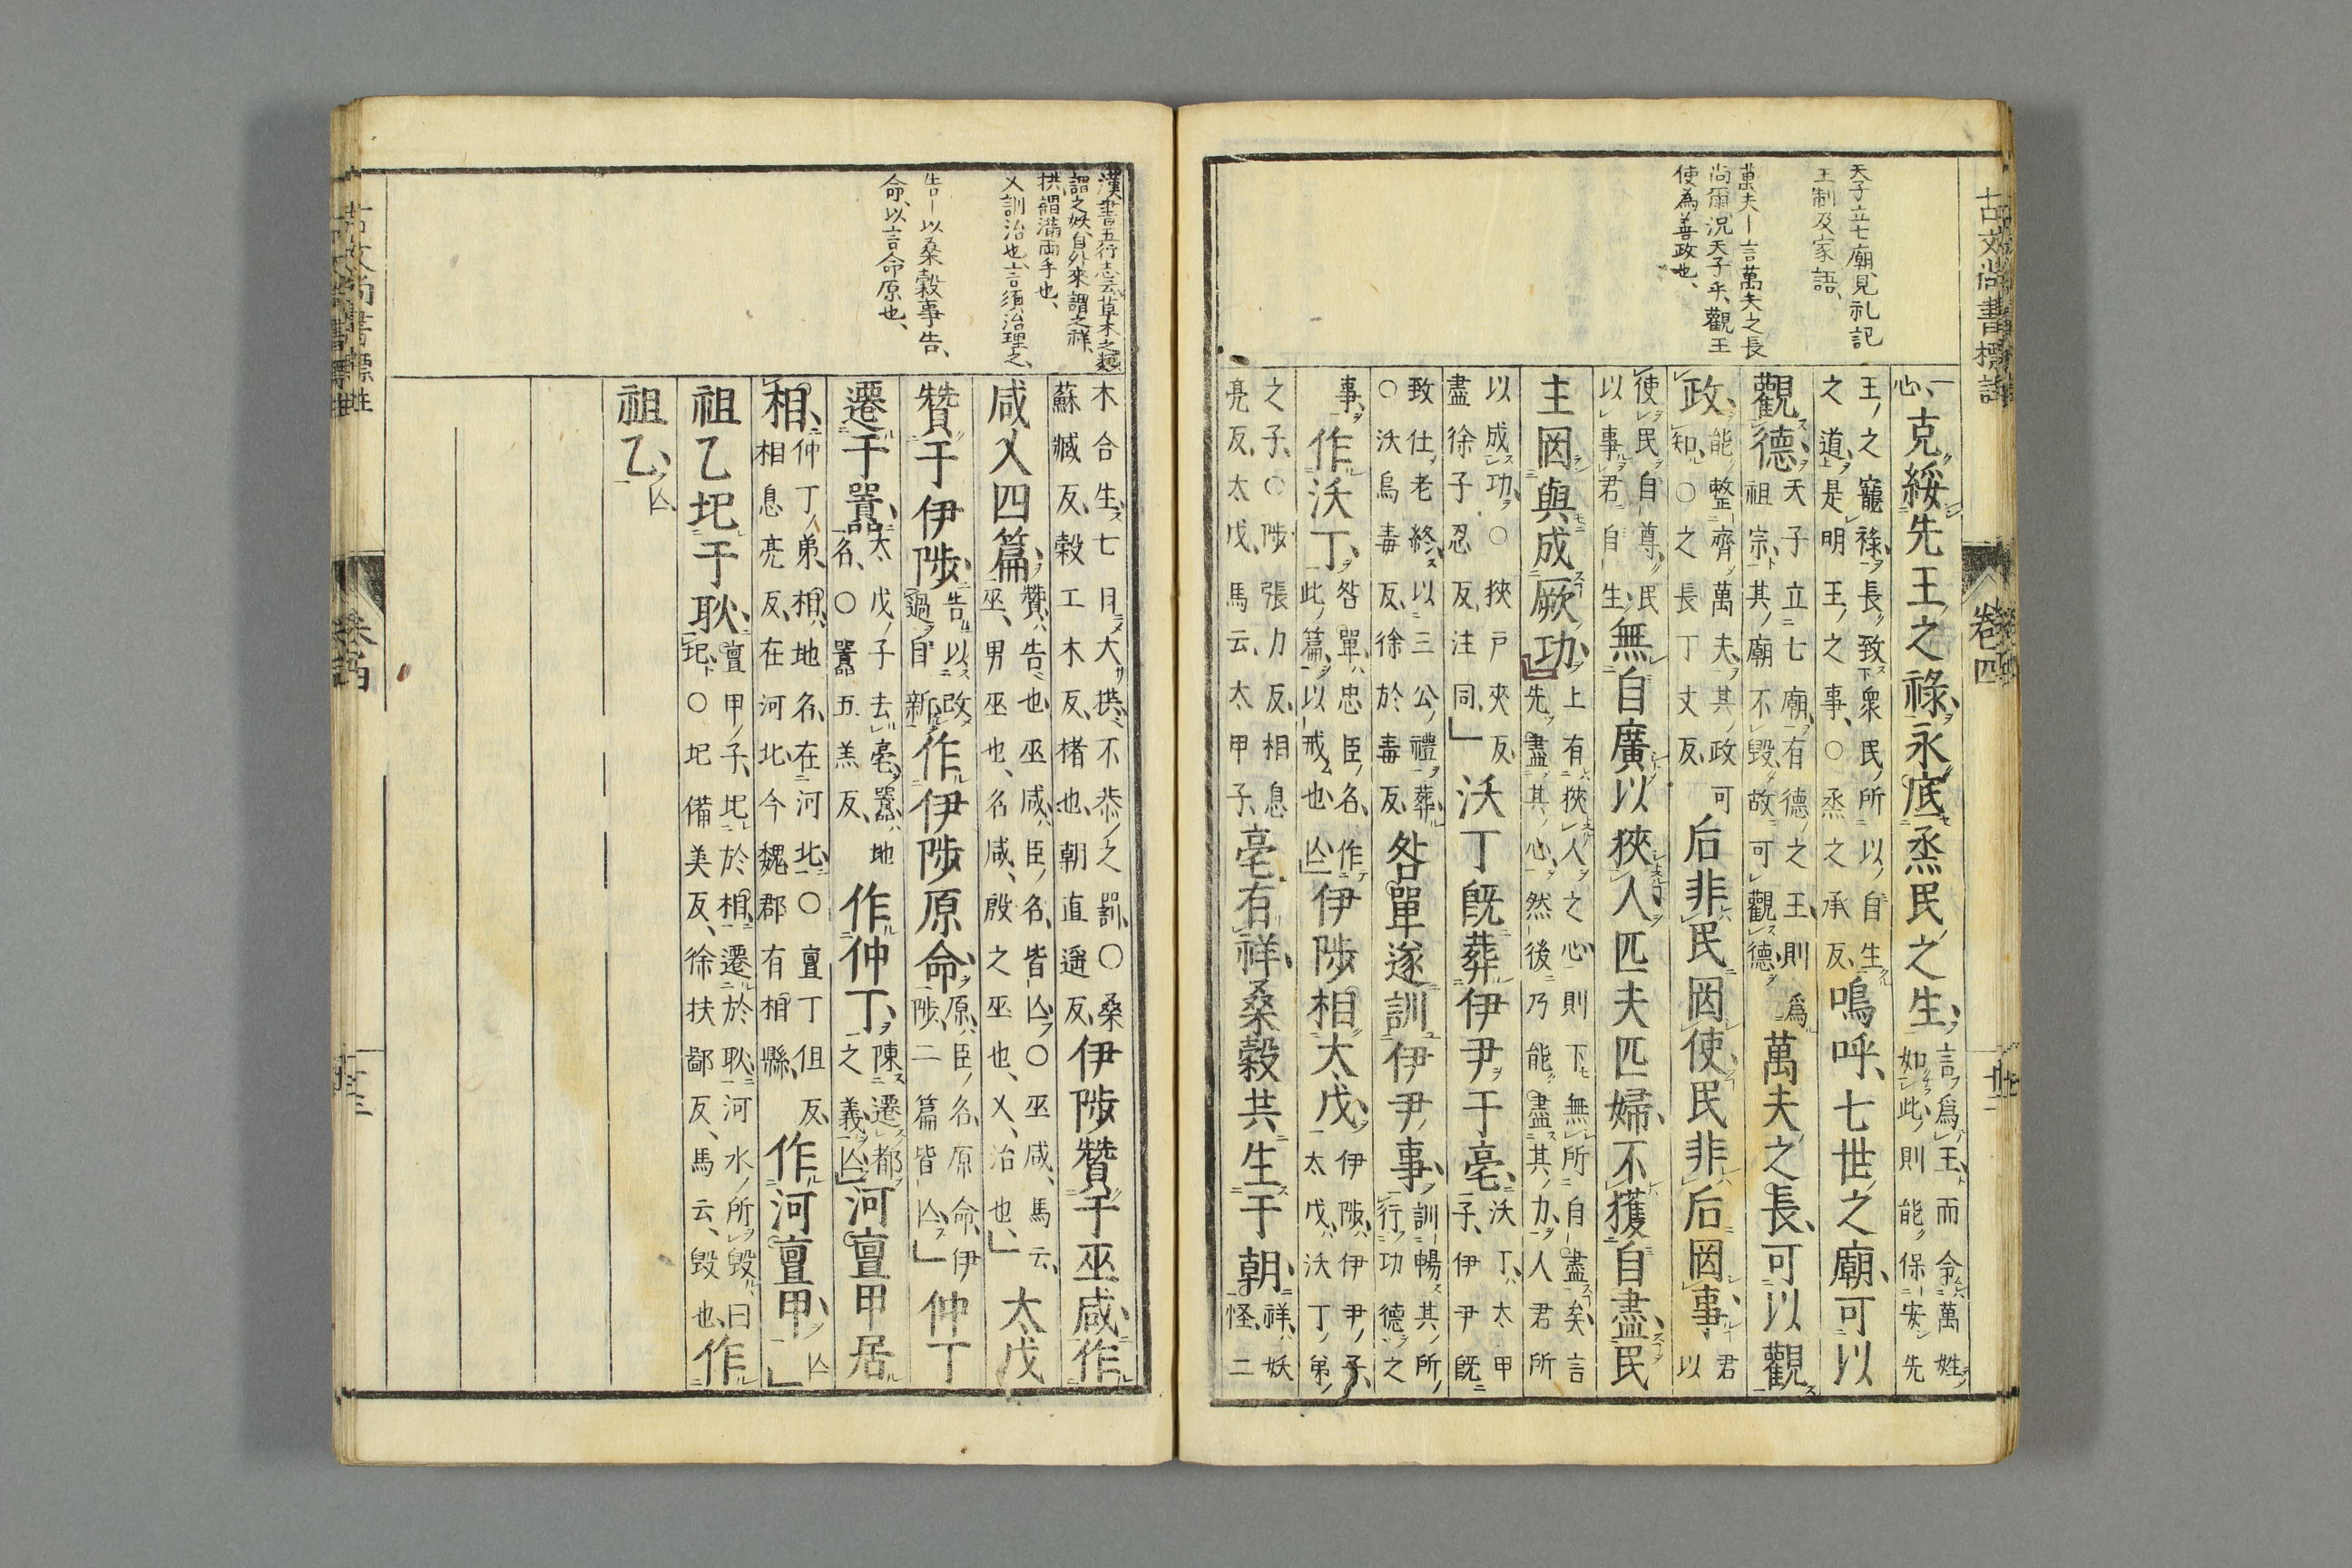 古文尚書標註
卷四
天子立七廟、見礼記
王制及家語、
萬夫ー言萬夫之長
尚爾、況天子乎、觀王
使為善政也、
一心、克綏先王之祿、永底烝民之生、言爲王而令萬姓如此、則能保安先
王之寵祿、長致衆民所以自生之道、是明王之事、○烝之承反、嗚呼、七世之廟、可以
觀德、天子立七廟、有德之王、則爲祖宗、其廟不毀、故可觀德、萬夫之長、可以觀
政、能整齊萬夫、其政可知、○之長丁丈反、后非民罔使、民非后罔事、君以
使民自尊、民以事君自生、無自廣以狹人、匹夫匹婦、不獲自盡、民
主罔與成厥功、上有狹人之心、則下無所自盡矣、言先盡其心、然後乃能盡其力、人君所
以成功、○狹戶夾反、盡徐子忍反、注同、」沃丁既葬伊尹于亳、沃丁、太甲子、伊尹既
致仕老終、以三公禮葬、○沃烏毒反、徐於毒反、咎單遂訓伊尹事、訓暢其所行功德之
事、作沃丁、咎單、忠臣名、作此篇、以戒也、亾」伊陟相太戊、伊陟、伊尹子、太戊、沃丁弟
之子、○陟張力反、相息亮反、太戊、馬云、太甲子、亳有祥、桑穀共生于朝、祥、妖怪、二
漢書五行志云、草木之類
謂之妖、自外來謂之祥、
拱謂滿両手也、
乂訓治也、言須治理之、
告ー以桑穀事告、
命、以言命原也、
木合生、七日大拱、不恭之罰、○桑蘇臧反、穀工木反、楮也、朝直遥反、伊陟贊于巫咸、作
咸乂四篇、贊、告也、巫咸、臣名、皆亾、○巫咸、馬云、巫、男巫也、名咸、殷之巫也、乂、治也、」太戊
贊于伊陟、告以改過自新、作伊陟原命、原、臣名、原命、伊陟、二篇皆亾、」仲丁
遷于囂、太戊子、去亳、囂、地名、○囂五羔反、作仲丁、陳遷都之義、亾」河亶甲居
相、仲丁弟、相、地名、在河北、○亶丁但反、相息亮反、在河北、今魏郡有相縣、作河亶甲、亾」
祖乙圯于耿、亶甲子、圯於相、遷於耿、河水所毀、曰圯、○圯備美反、徐扶鄙反、馬云、毀也、作
祖乙、亾